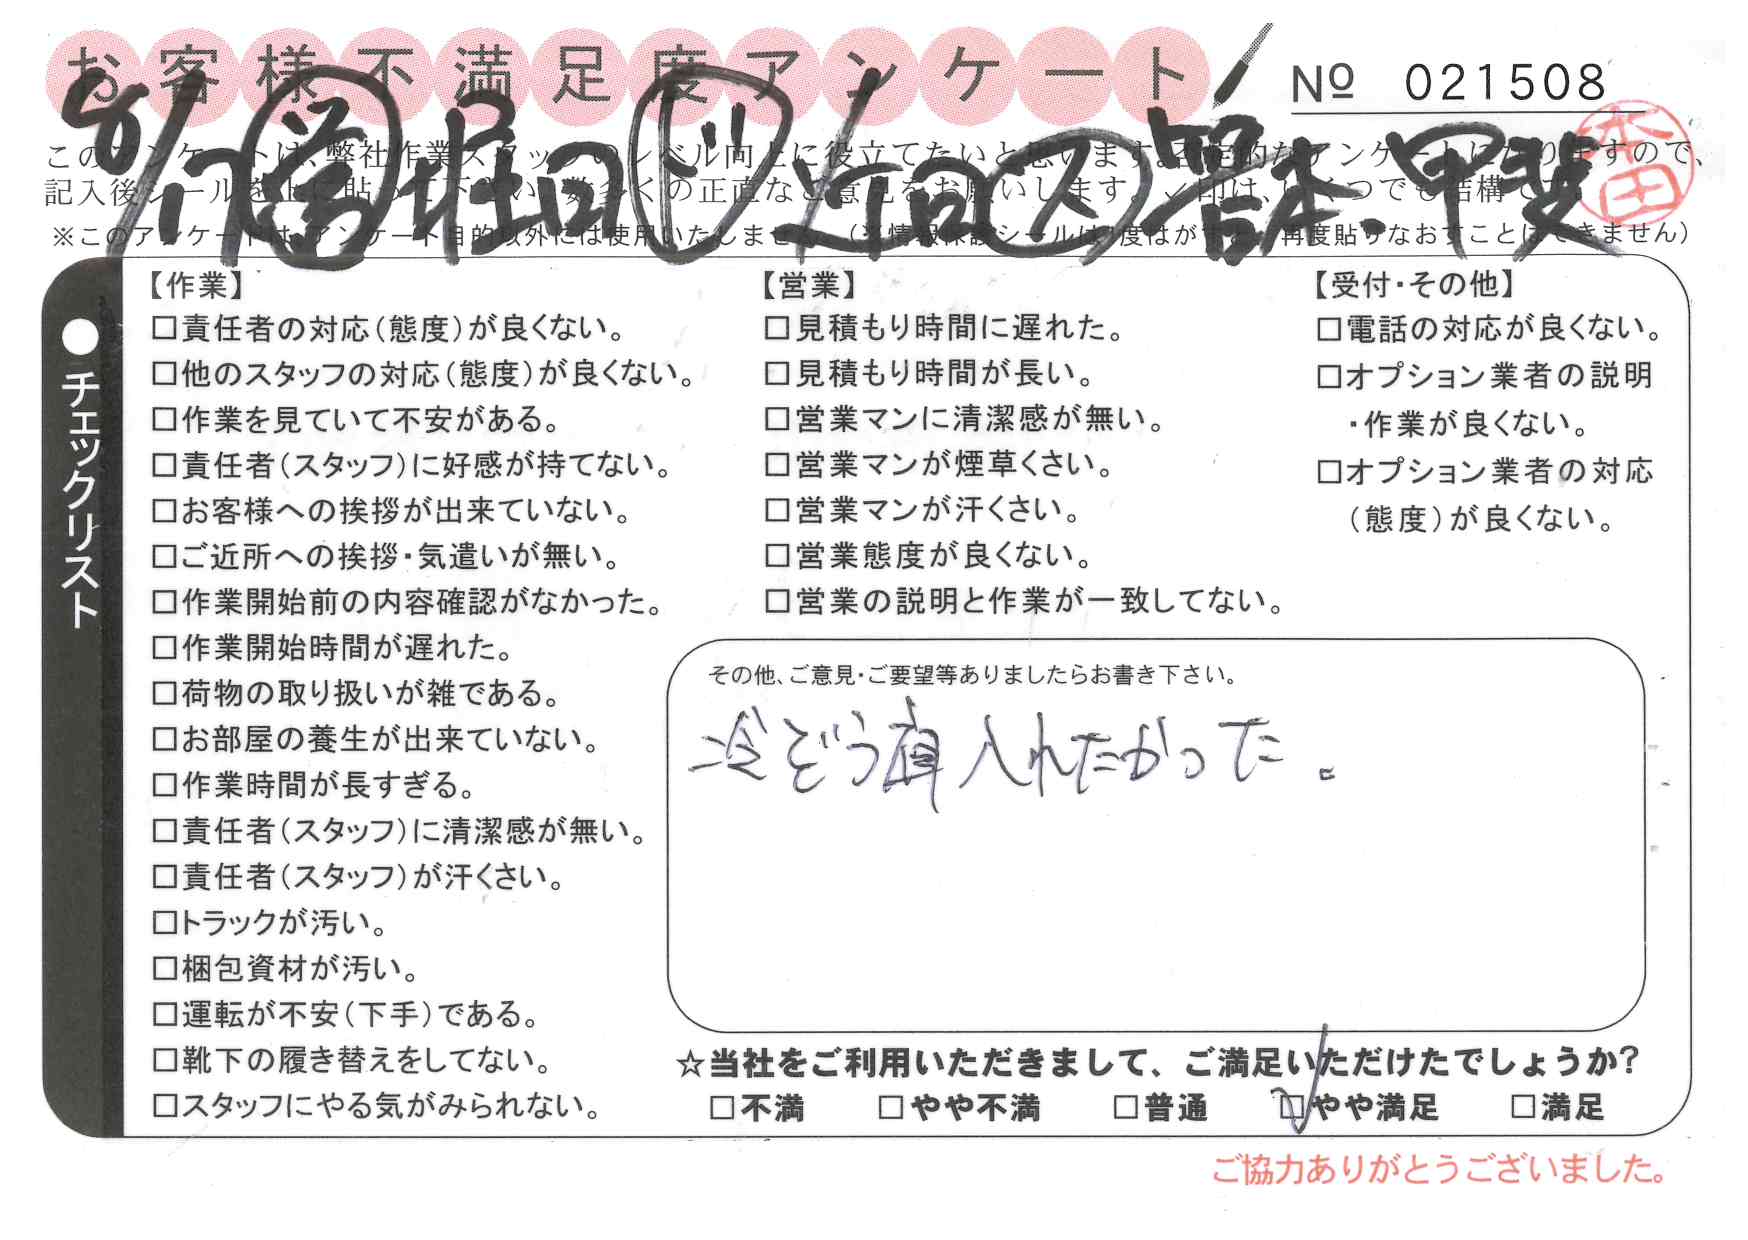 お客様不満足度アンケート
№ 021508
本田
8/17 営 堀向 ド 近向 ス 岩本、甲斐
このアンケートは、弊社作業スタッフのレベル向上に役立てたいと思います。否定的なアンケートになりますので、
記入後シールを上に貼って下さい。数多くの正直なご意見をお願いします。✓印は、いくつでも結構です。
※このアンケートは、アンケート目的以外には使用いたしません。
●チェックリスト
【作業】
□責任者の対応(態度)が良くない。
□他のスタッフの対応(態度)が良くない。
□作業を見ていて不安がある。
□責任者(スタッフ)に好感が持てない。
□お客様への挨拶が出来ていない。
□ご近所への挨拶・気遣いが無い。
□作業開始前の内容確認がなかった。
□作業開始時間が遅れた。
□荷物の取り扱いが雑である。
□お部屋の養生が出来ていない。
□作業時間が長すぎる。
□責任者(スタッフ)に清潔感が無い。
□責任者(スタッフ)が汗くさい。
□トラックが汚い。
□梱包資材が汚い。
□運転が不安(下手)である。
□靴下の履き替えをしてない。
□スタッフにやる気がみられない。
【営業】
□見積もり時間に遅れた。
□見積もり時間が長い。
□営業マンに清潔感が無い。
□営業マンが煙草くさい。
□営業マンが汗くさい。
□営業態度が良くない。
□営業の説明と作業が一致してない。
【受付・その他】
□電話の対応が良くない。
□オプション業者の説明
・作業が良くない。
□オプション業者の対応
(態度)が良くない。
その他、ご意見・ご要望等ありましたらお書き下さい。
冷ぞう庫入れたかった。
☆当社をご利用いただきまして、ご満足いただけたでしょうか?
□不満 □やや不満 □普通 ☑やや満足 □満足
ご協力ありがとうございました。